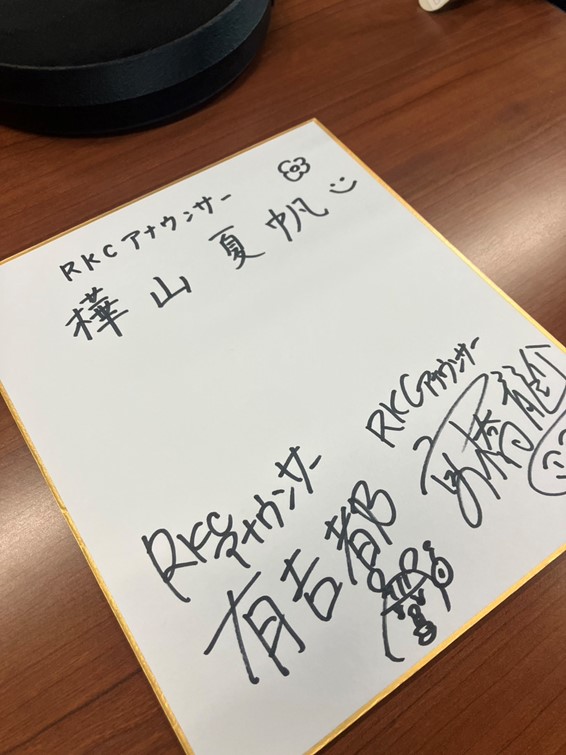 RKCアナウンサー
樺山 夏帆
RKCアナウンサー
RKCアナウンサー
有吉都